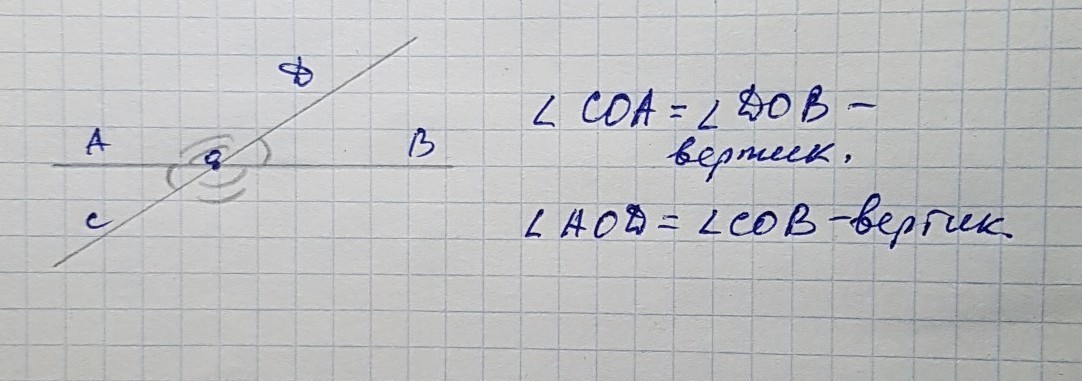 D
A
O
B
C
∠ COA = ∠ DOB –
вертик.
∠ AOD = ∠ COB – вертик.